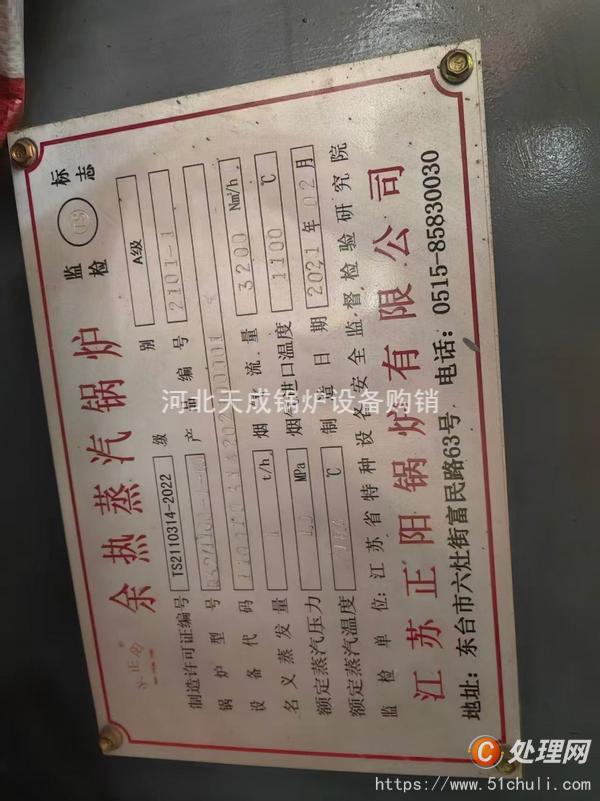 余热蒸汽锅炉
监检
标志
制造许可证编号 TS2110314-2022 级别 A级
锅炉型号 产品编号 2101-1
设备代码
名义蒸发量 t/h 烟气流量 3200 Nm³/h
额定蒸汽压力 MPa 烟气进口温度 1100 ℃
额定蒸汽温度 ℃ 制造日期 2021年02月
监检单位:江苏省特种设备安全监督检验研究院
江苏正阳锅炉有限公司
地址:东台市六灶街富民路63号 电话:0515-85830030
河北天成锅炉设备购销
C处理网
https://www.51chuli.com/